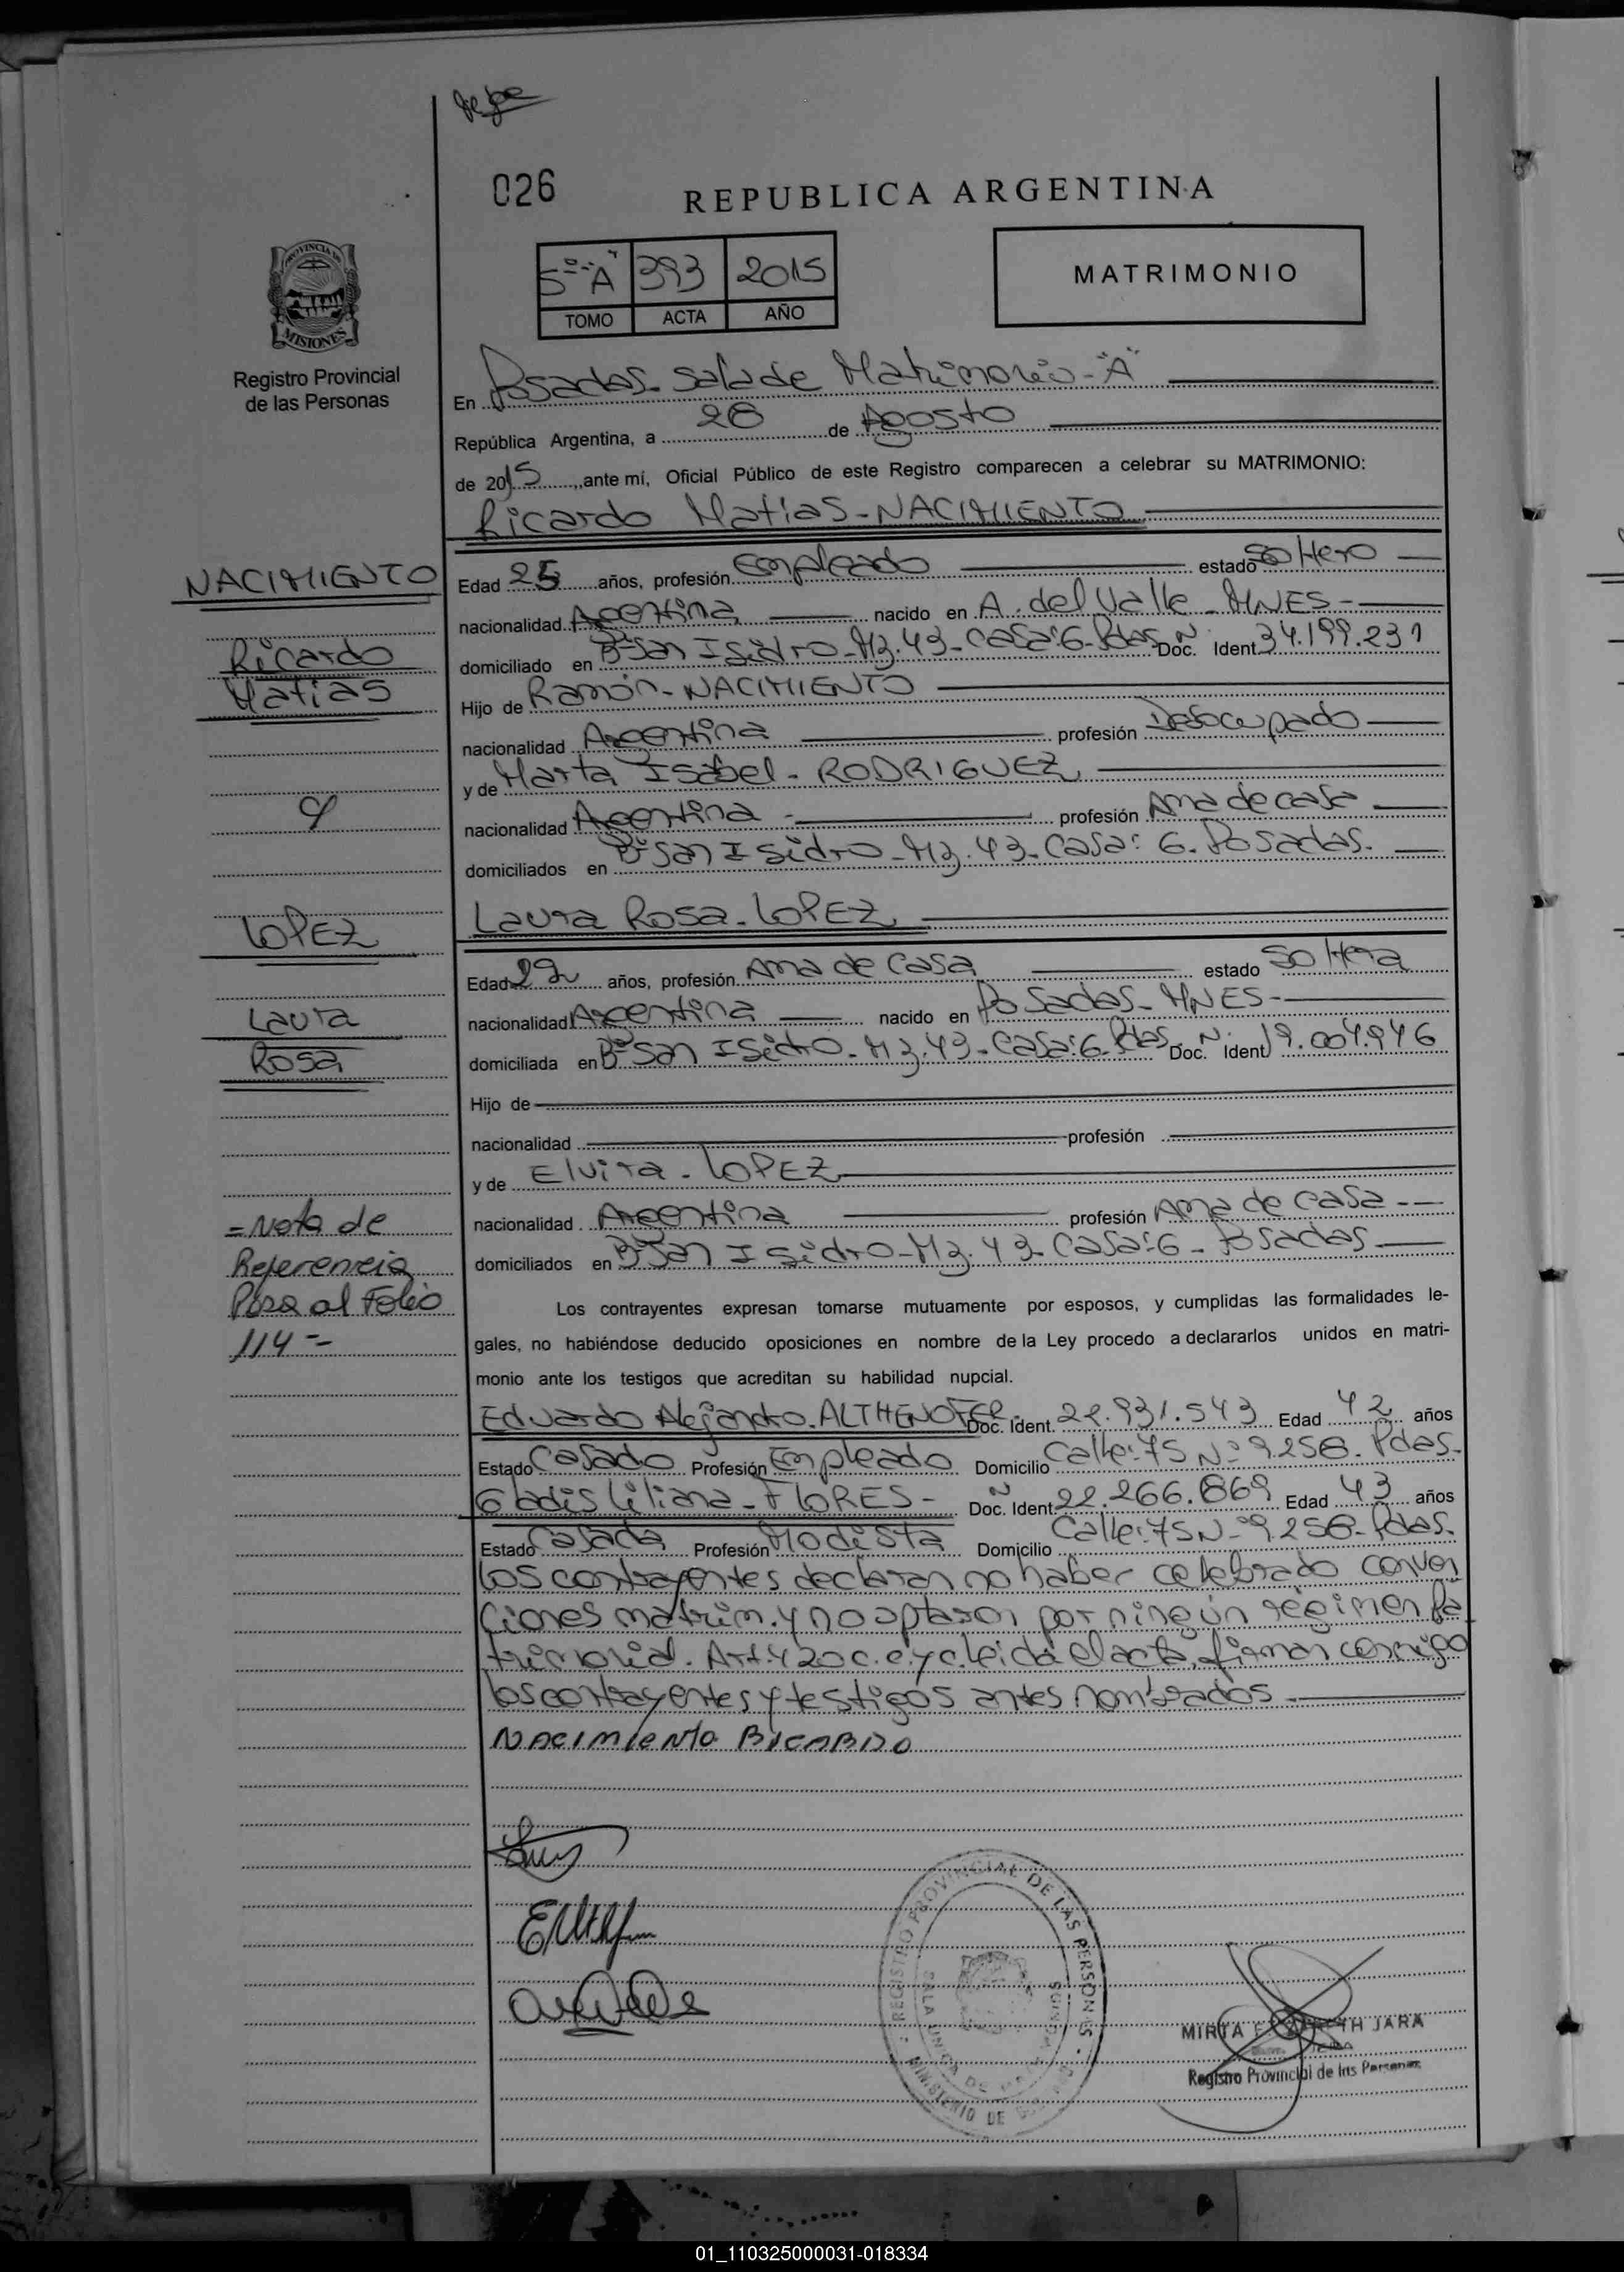 026
REPUBLICA ARGENTINA
5º "A" 393 2015
TOMO ACTA AÑO
MATRIMONIO
PROVINCIA DE
MISIONES
Registro Provincial
de las Personas
En Posadas - Sala de Matrimonio - "A"
República Argentina, a 28 de Agosto
de 2015, ante mí, Oficial Público de este Registro comparecen a celebrar su MATRIMONIO:
Ricardo Matias - NACIMIENTO
NACIMIENTO
Ricardo
Matias
y
LOPEZ
Laura
Rosa
Edad 25 años, profesión Empleado estado Soltero
nacionalidad Argentina nacido en A. del Valle - MNES -
domiciliado en Bº San Isidro - Mz. 43 - Casa: 6 - Pdas. Doc. N Ident. 34.199.231
Hijo de Ramón - NACIMIENTO
nacionalidad Argentina profesión Desocupado
y de Marta Isabel - RODRIGUEZ
nacionalidad Argentina - profesión Ama de casa
domiciliados en Bº San Isidro - Mz. 43 - Casa: 6 - Posadas.
Laura Rosa - LOPEZ
Edad 22 años, profesión Ama de Casa estado Soltera
nacionalidad Argentina nacido en Posadas - MNES -
domiciliada en Bº San Isidro - Mz. 43 - Casa: 6 - Pdas. Doc. N Ident. 19.004.946
Hijo de
nacionalidad profesión
y de Elvira - LOPEZ
nacionalidad Argentina profesión Ama de Casa -
domiciliados en Bº San Isidro - Mz. 43 - Casa: 6 - Posadas
= Nota de
Referencia
Pasa al Folio
114 =
Los contrayentes expresan tomarse mutuamente por esposos, y cumplidas las formalidades le-
gales, no habiéndose deducido oposiciones en nombre de la Ley procedo a declararlos unidos en matri-
monio ante los testigos que acreditan su habilidad nupcial.
Eduardo Alejandro. ALTHENOFER - Doc. Ident. 22.931.543 Edad 42 años
Estado Casado Profesión Empleado Domicilio Calle: 75 Nº 9258. Pdas.
Gladis Liliana - FLORES - Doc. N Ident. 22.266.869 Edad 43 años
Estado Casada Profesión Modista Domicilio Calle: 75 Nº 9258 - Pdas.
Los contrayentes declaran no haber celebrado conven
ciones matrim. y no optaron por ningún régimen pa
trimonial. Art. 420 c. c. y c. Leída el acta, firman conmigo
los contrayentes y testigos antes nombrados -
NACIMIENTO RICARDO
REGISTRO PROVINCIAL DE LAS PERSONAS
MINISTERIO DE
MIRTA JARA
Registro Provincial de las Personas
01_110325000031-018334